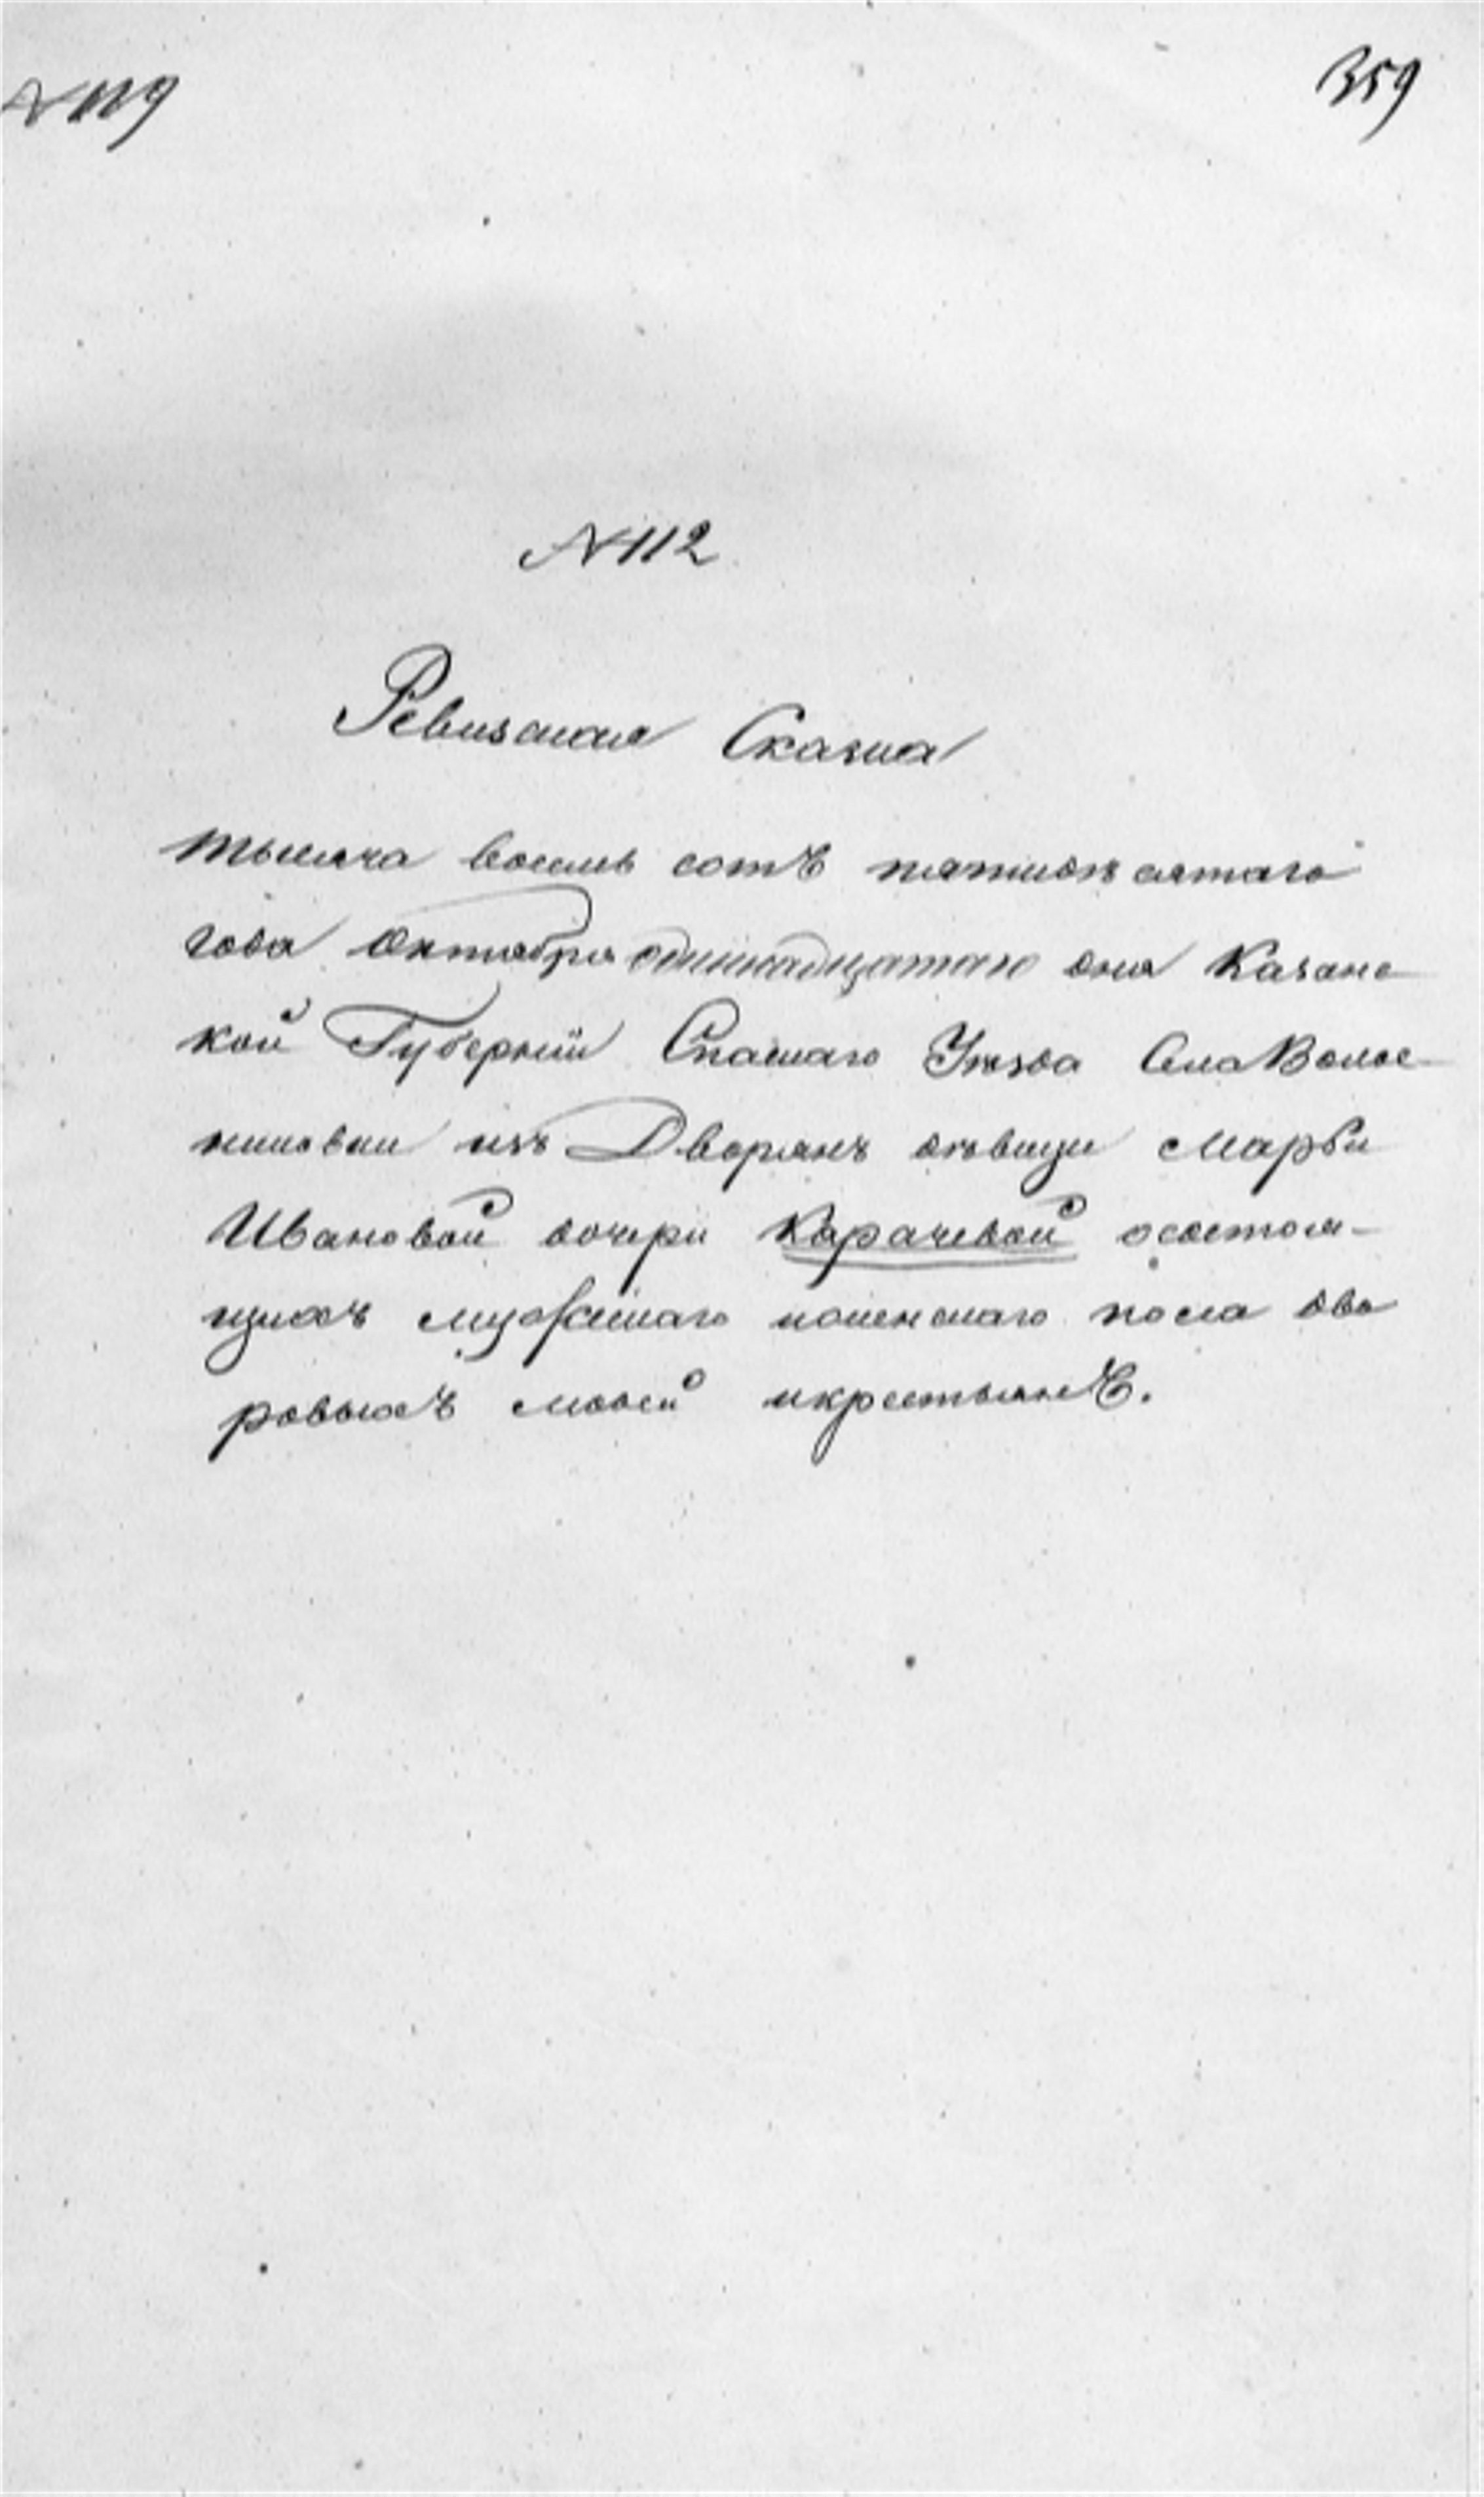 N119
359
N112
Ревизская Сказка
тысяча восемь сотъ пятидесятаго
года Октября одинадцатаго дня Казанс
кой Губерніи Спаскаго Уѣзда Села
из Дворянъ дѣвицы Марьи
Ивановой дочери Карачевой осостоя-
щихъ мужскаго иженскаго пола дво
ровыхъ людей икрестьянъ.